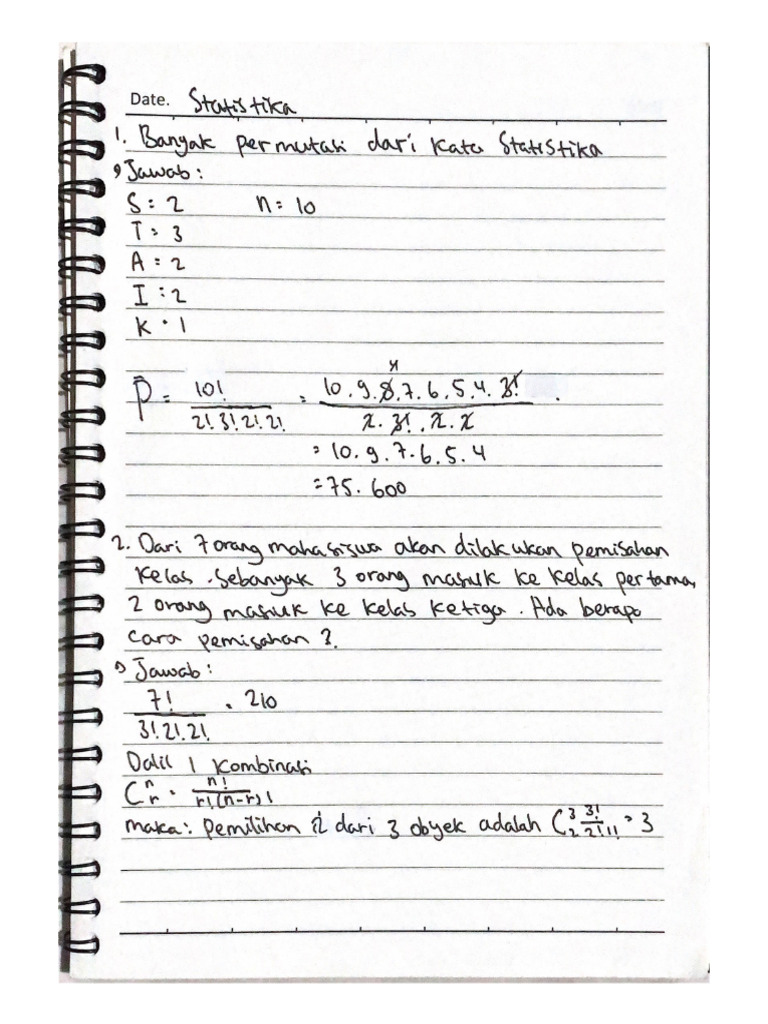 Date. Statistika
1. Banyak permutasi dari kata Statistika
Jawab:
S : 2 n = 10
T = 3
A : 2
I : 2
K · 1
P = 10! / 2!.3!.2!.2! = 10.9.8.7.6.5.4.3! / 2.3!.2.2
= 10.9.7.6.5.4
= 75.600
2. Dari 7 orang mahasiswa akan dilakukan pemisahan
kelas. Sebanyak 3 orang masuk ke kelas pertama,
2 orang masuk ke kelas ketiga. Ada berapa
cara pemisahan ?.
Jawab:
7! / 3!.2!.2! = 210
Dalil 1 Kombinasi
C n r = n! / r!(n-r)!
maka: Pemilihan 2 dari 3 obyek adalah C 3 2 3! / 2!1! = 3